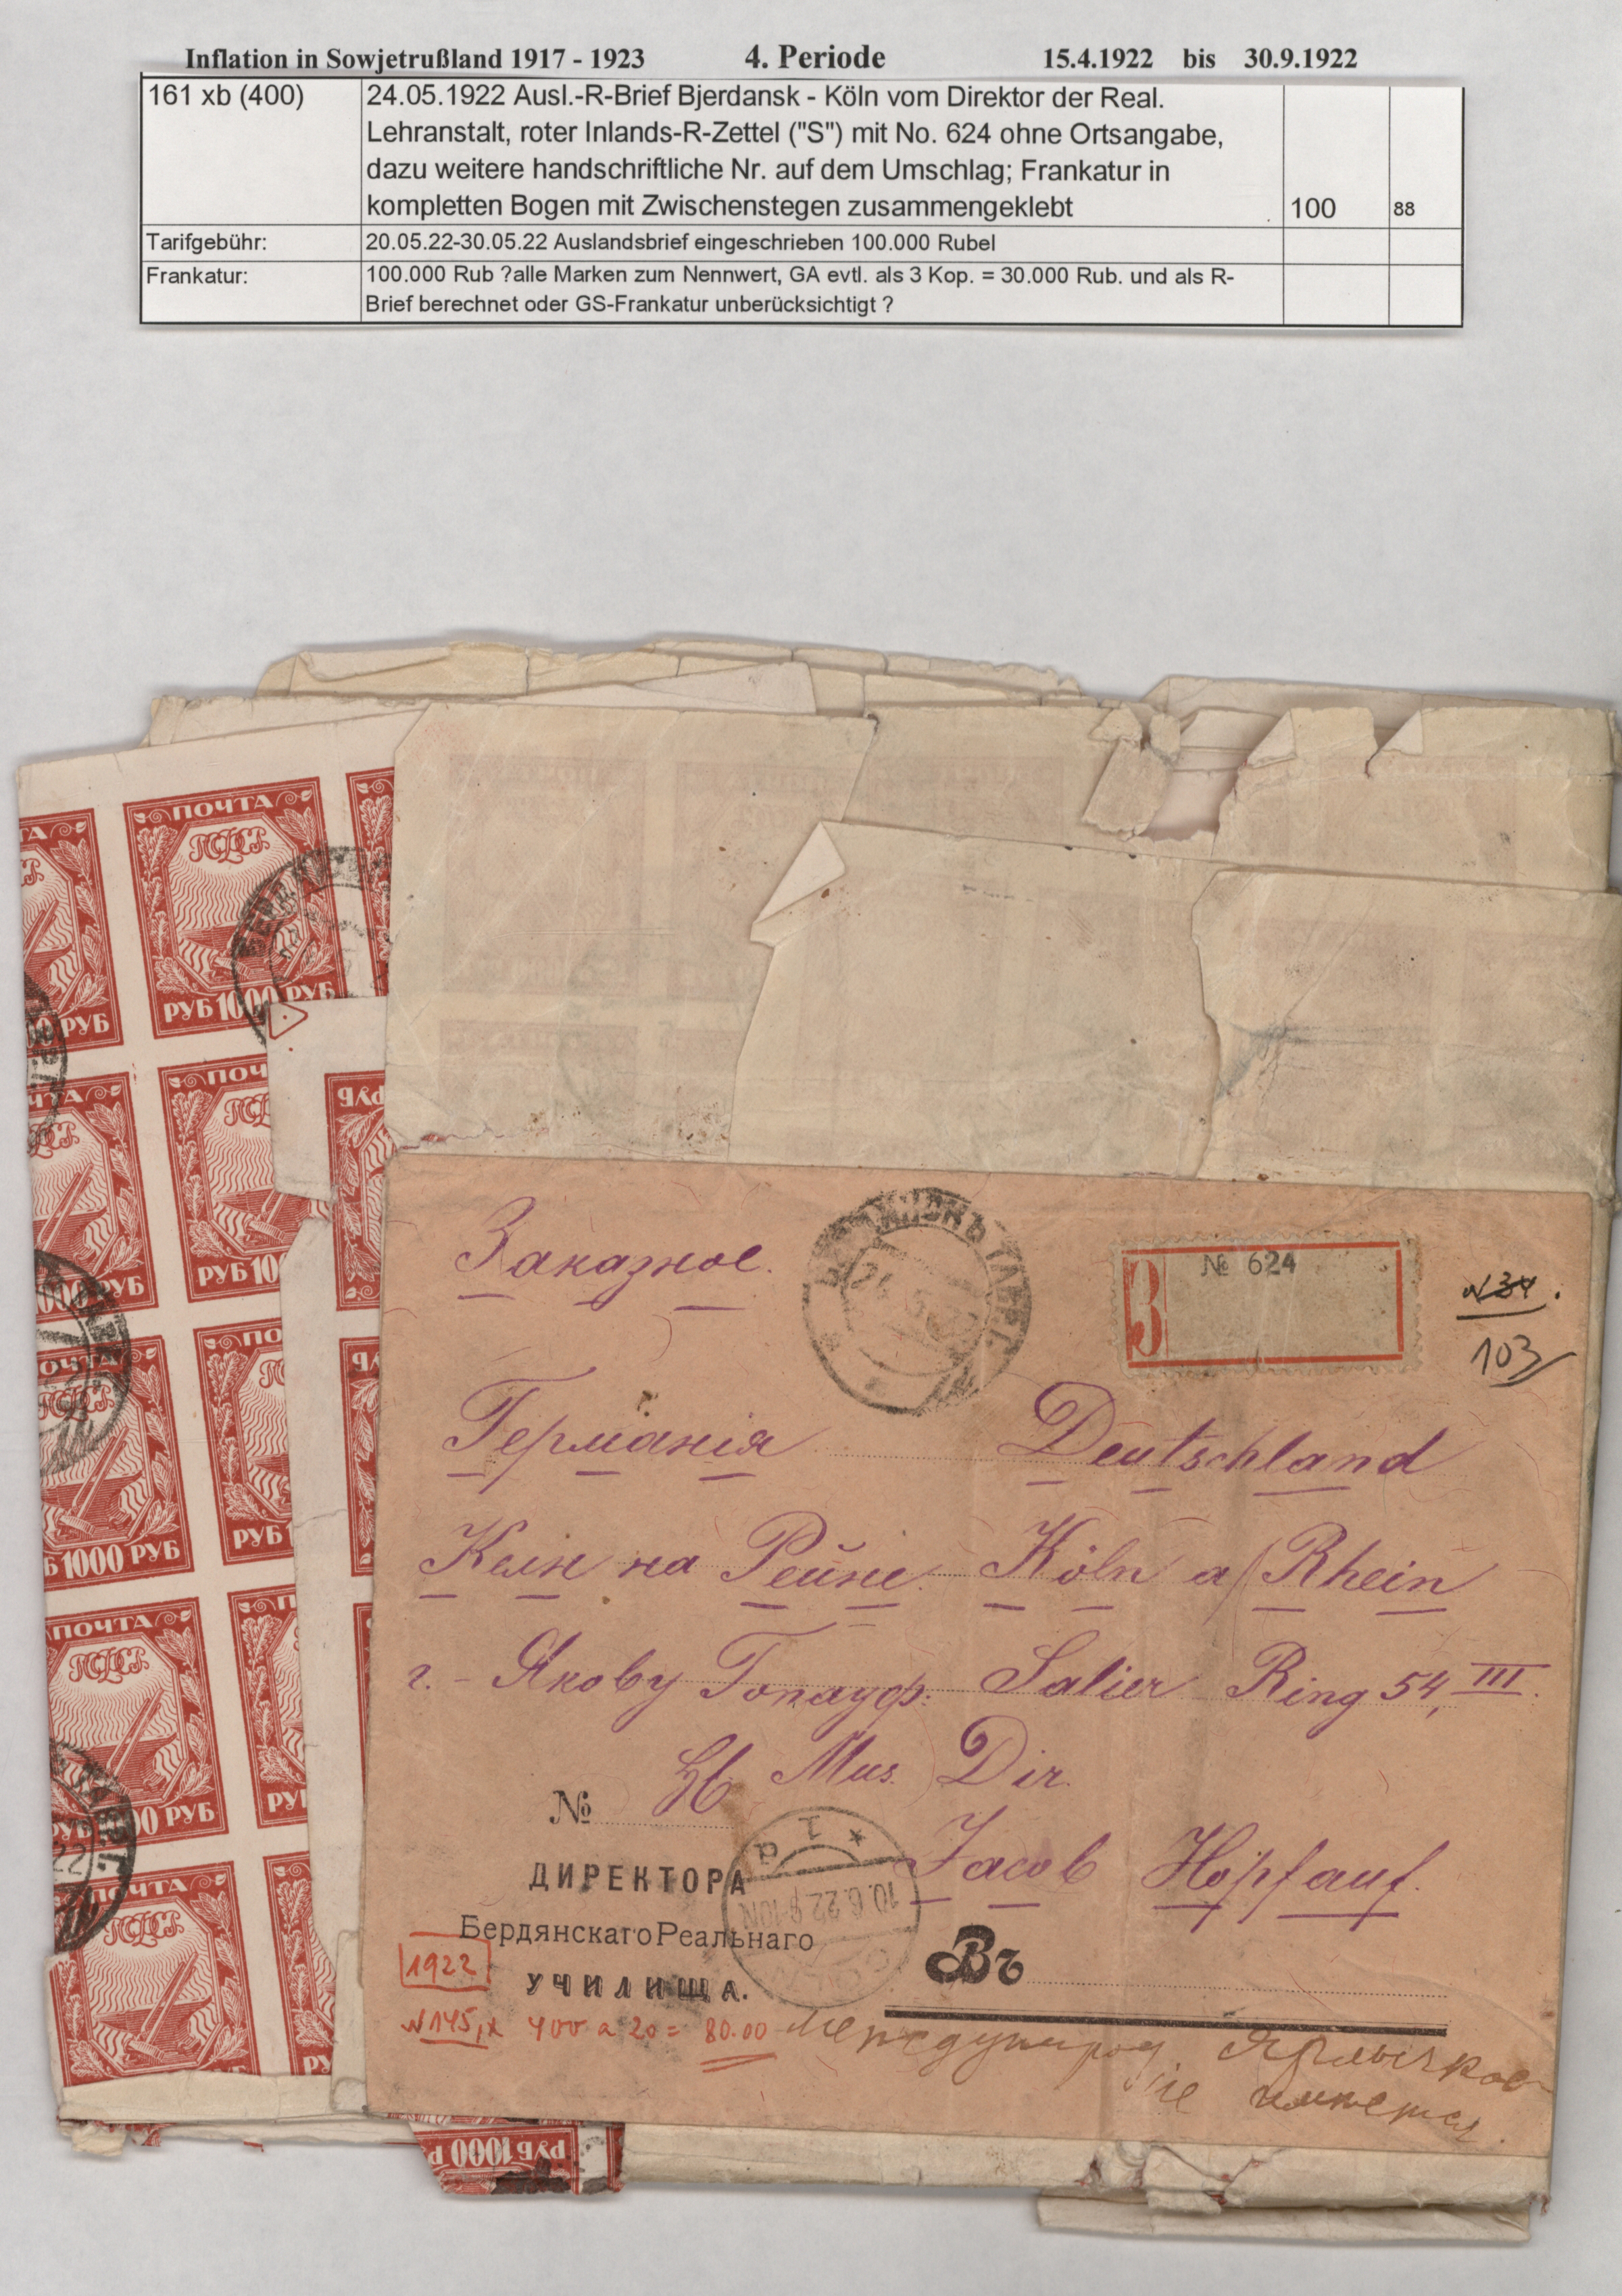 Inflation in Sowjetrußland 1917 - 1923 4. Periode 15.4.1922 bis 30.9.1922
161 xb (400)
24.05.1922 Ausl.-R-Brief Bjerdansk - Köln vom Direktor der Real.
Lehranstalt, roter Inlands-R-Zettel ("S") mit No. 624 ohne Ortsangabe,
dazu weitere handschriftliche Nr. auf dem Umschlag; Frankatur in
kompletten Bogen mit Zwischenstegen zusammengeklebt
100
88
Tarifgebühr:
20.05.22-30.05.22 Auslandsbrief eingeschrieben 100.000 Rubel
Frankatur:
100.000 Rub ?alle Marken zum Nennwert, GA evtl. als 3 Kop. = 30.000 Rub. und als R-
Brief berechnet oder GS-Frankatur unberücksichtigt ?
ПОЧТА
РУБ 1000 РУБ
ПОЧТА
Б 1000 РУБ
ПОЧТА
ПОЧТА
РУБ 1000
Заказное.
З
№ 624
N34.
103
Германія Deutschland
Келн на Рейне. Köln a/Rhein
г. - Якову Гопауф: Salier Ring 54, III.
Mus. Dir.
№
Jacob Höpfauf.
ДИРЕКТОРА
10.6.22.9-10N
Бердянскаго Реальнаго
1922
УЧИЛИЩА.
Въ
N145,x 400 a 20 = 80.00
Международ Ярлычков
не имеется.